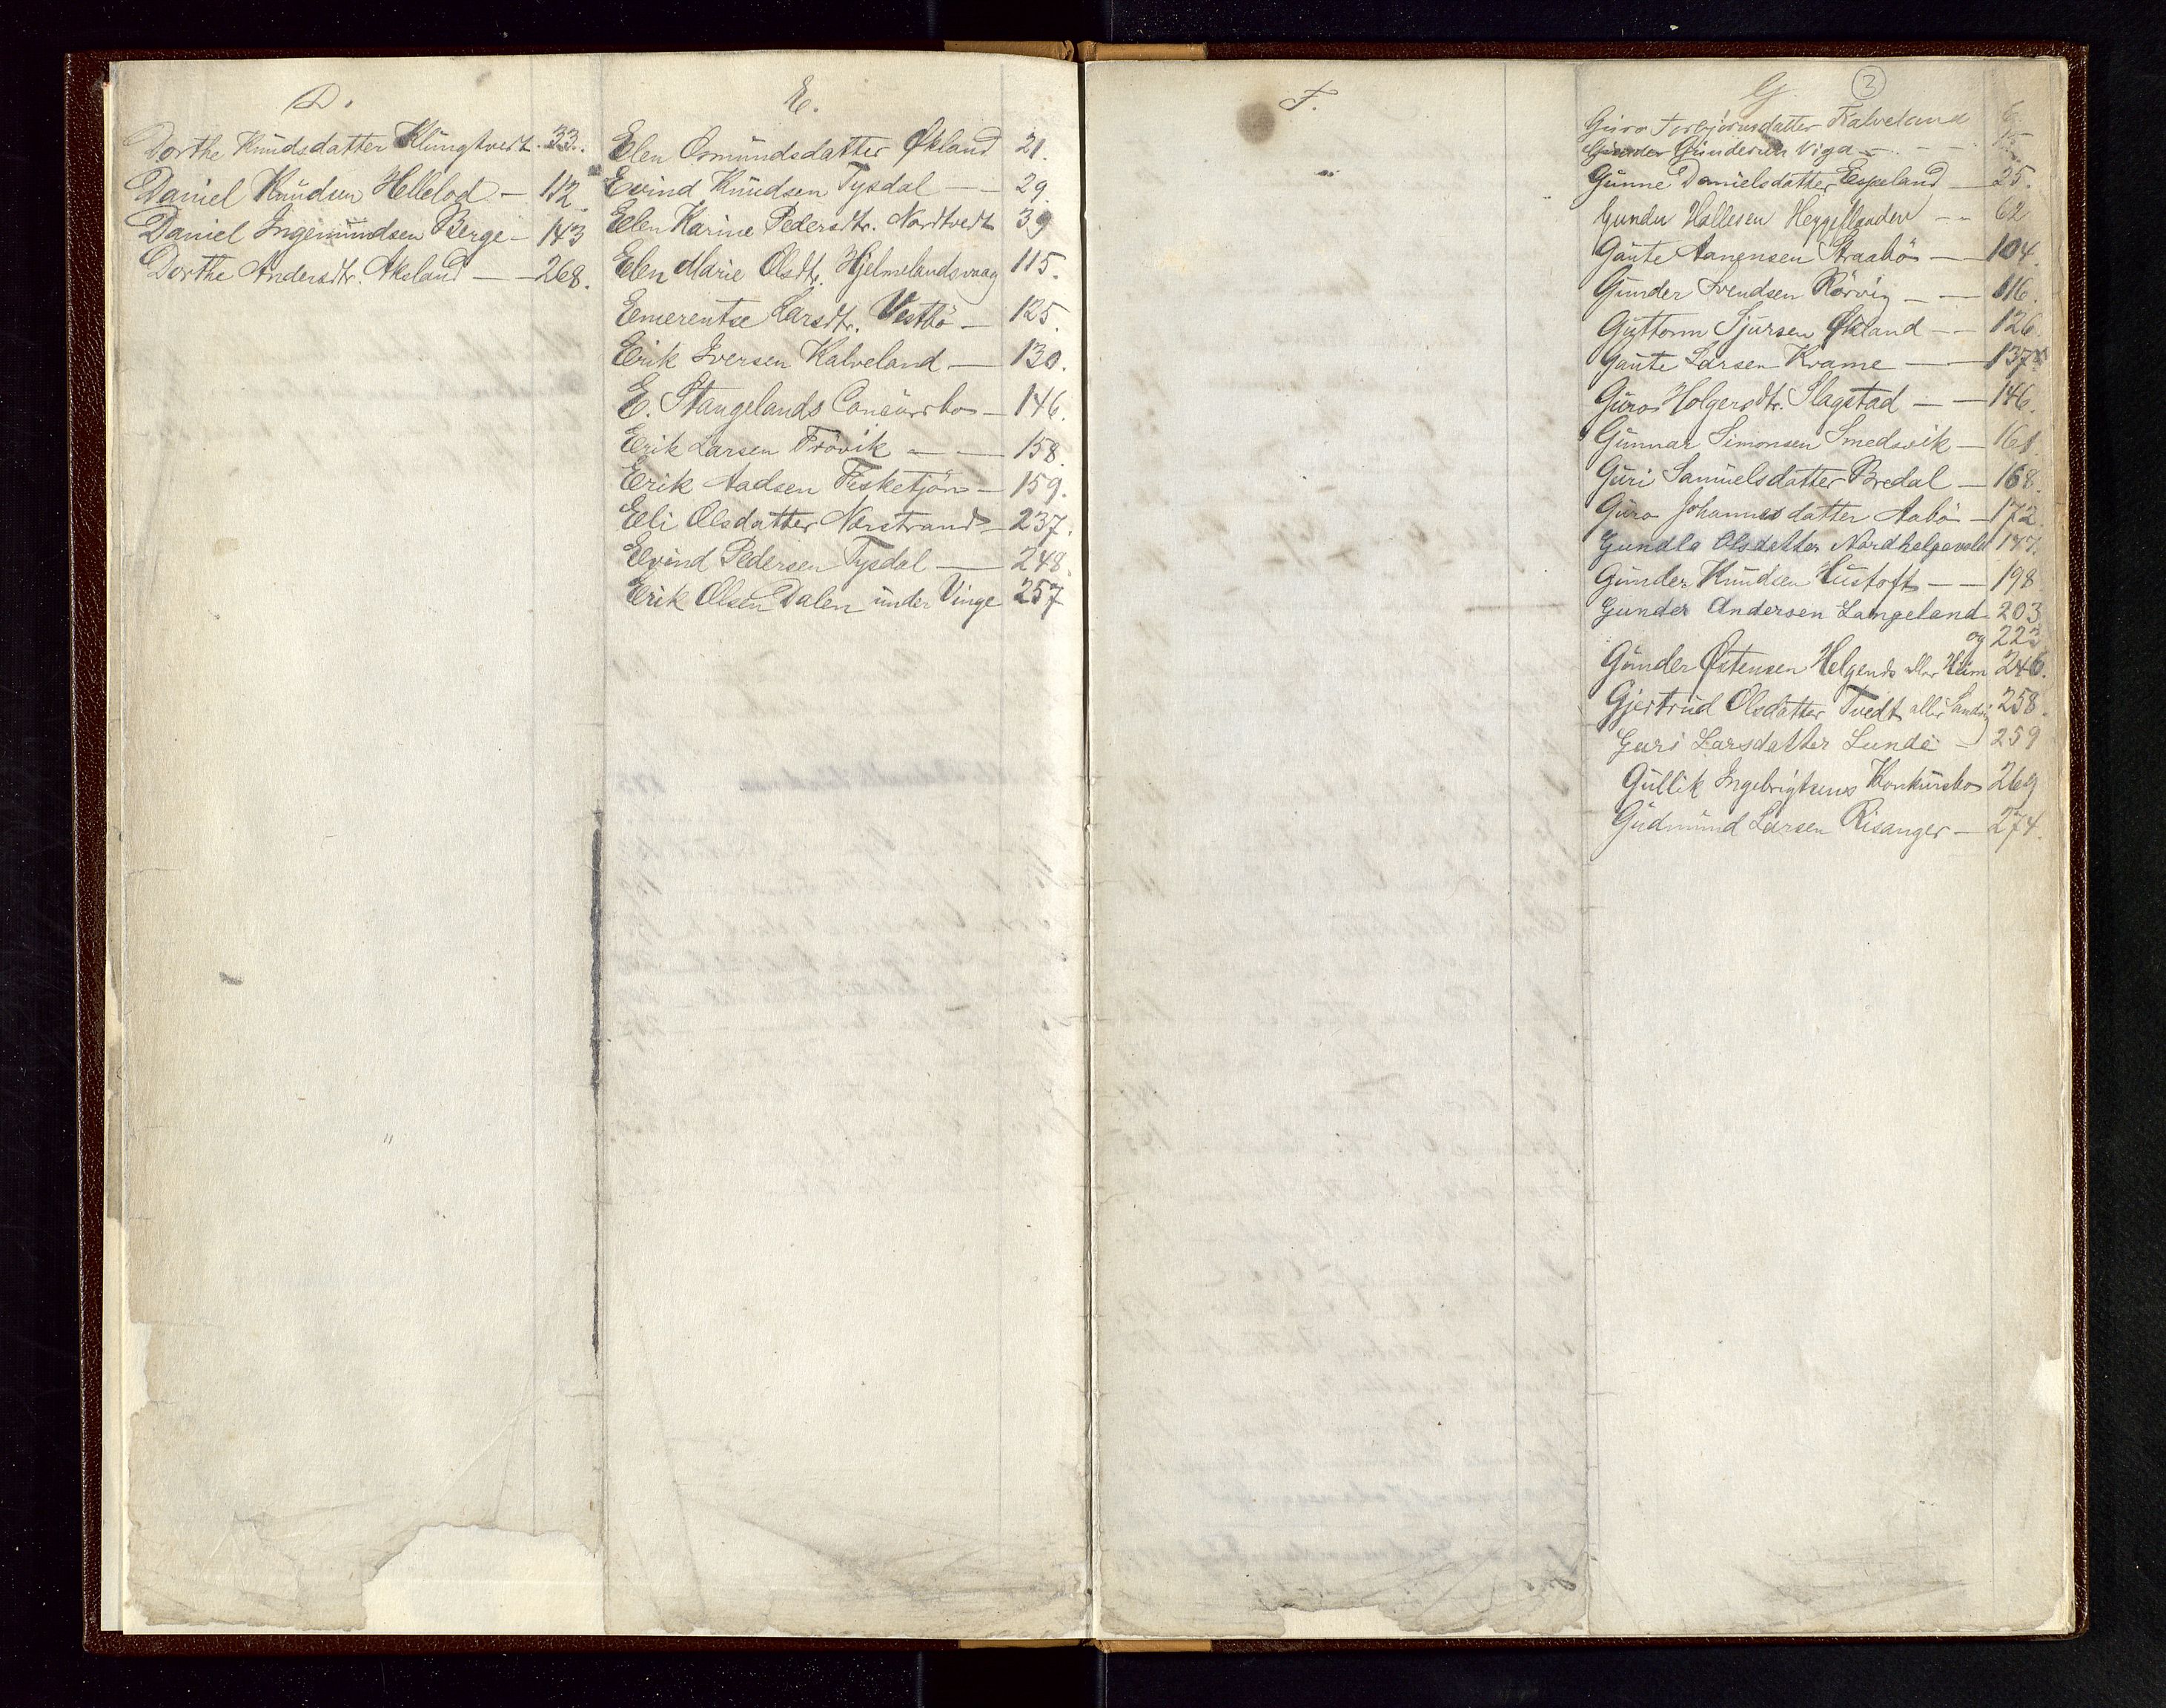 D.
Dorthe Knudsdatter Klungtvedt. 33.
Daniel Knudsen Hellelod — 112
Daniel Ingemundsen Berge — 143
Dorthe Andersdtr. Aksland — 268.
E.
Elen Osmundsdatter Økland 21.
Evind Knudsen Tysdal — 29.
Elen Karine Pedersdtr. Nordtvedt 39
Elen Marie Olsdtr. Hjelmelandsvaag 115.
Emerentse Larsdtr. Vestbö — 125.
Erik Iversen Kalveland — 130.
E. Stangelands Concursbo — 146.
Erik Larsen Trövik — 158.
Erik Aadsen Fisketjön — 159.
Eli Olsdatter Norstrand — 237.
Evind Pedersen Tysdal — 248.
Erik Olsen Dalen under Vinge 257
F.
G. 3
Guro Torbjörnsdatter Kalveland 6.
Gunder Gundersen Viga — 15
Gunne Danielsdatter Espeland — 25.
Gunder Hallesen Heggeflanden — 62
Gaute Aanensen Straabö — 104.
Gunder Svendsen Rörvig — 116.
Guttorm Sjursen Økland — 126.
Gaute Larsen Kvame — 137
Guro Holgersdtr. Slagstad — 146.
Gunnar Simonsen Smedsvik — 161.
Guri Samuelsdatter Bredal — 168.
Guro Johannesdatter Aabö — 172.
Gundla Olsdatter Nordhelgevold 177.
Gunder Knudsen Hustoft — 198
Gunder Andersen Langeland 203
og 223
Gunder Østensen Helgenes eller Heim 246.
Gjertrud Olsdatter Tvedt eller Sandvig 258.
Guri Larsdatter Lunde — 259
Gullik Ingebrigtsens Konkursbo 269
Gudmund Larsen Risanger — 274.